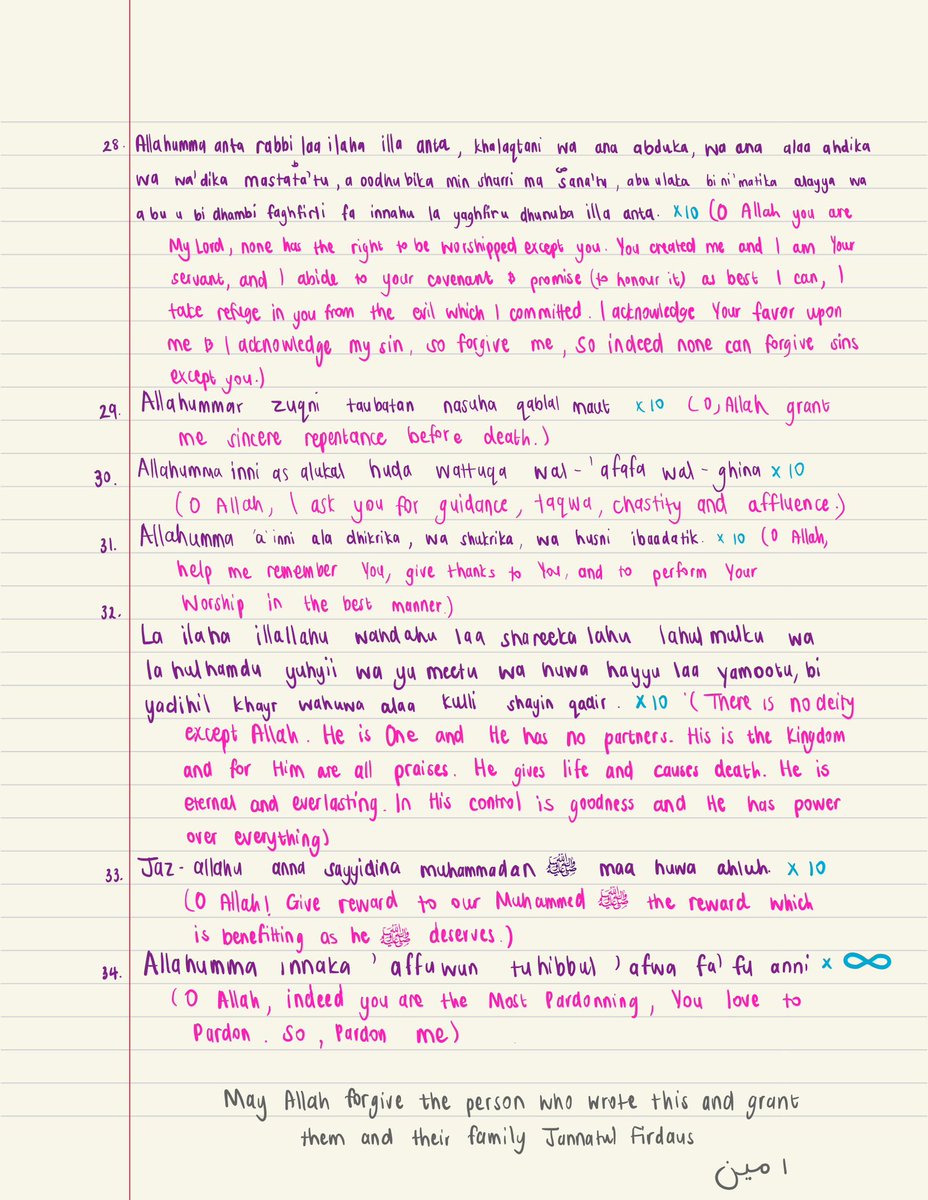 28. Allahumma anta rabbi laa ilaha illa anta, khalaqtani wa ana abduka, wa ana alaa ahdika
wa wa'dika mastata'tu, a oodhubika min sharri ma sana'tu, abu ulaka bi ni'matika alayya wa
abu u bi dhambi faghfirli fa innahu la yaghfiru dhunuba illa anta. x10 (O Allah you are
My Lord, none has the right to be worshipped except you. You created me and I am Your
servant, and I abide to your covenant & promise (to honour it) as best I can, I
take refuge in you from the evil which I committed. I acknowledge Your favor upon
me & I acknowledge my sin, so forgive me, So indeed none can forgive sins
except you.)
29. Allahummar zuqni taubatan nasuha qablal maut x10 (O, Allah grant
me sincere repentance before death.)
30. Allahumma inni as alukal huda wattuqa wal-'afafa wal-ghina x10
(O Allah, I ask you for guidance, taqwa, chastity and affluence.)
31. Allahumma 'a'inni ala dhikrika, wa shukrika, wa husni ibaadatik. x10 (O Allah,
help me remember You, give thanks to You, and to perform Your
Worship in the best manner.)
32.
La ilaha illallahu wahdahu laa shareeka lahu lahul mulku wa
la hulhamdu yuhyii wa yu meetu wa huwa hayyu laa yamootu, bi
yadihil khayr wahuwa alaa kulli shayin qadir. x10 (There is no deity
except Allah. He is One and He has no partners. His is the Kingdom
and for Him are all praises. He gives life and causes death. He is
eternal and everlasting. In His control is goodness and He has power
over everything)
33. Jaz-allahu anna sayyidina muhammadan ﷺ maa huwa ahluh. x10
(O Allah! Give reward to our Muhammed ﷺ the reward which
is benefitting as he ﷺ deserves.)
34. Allahumma innaka 'affuwun tuhibbul 'afwa fa'fu anni x ∞
(O Allah, indeed you are the Most Pardonning, You love to
Pardon. So, Pardon me)
May Allah forgive the person who wrote this and grant
them and their family Jannatul Firdaus
امين